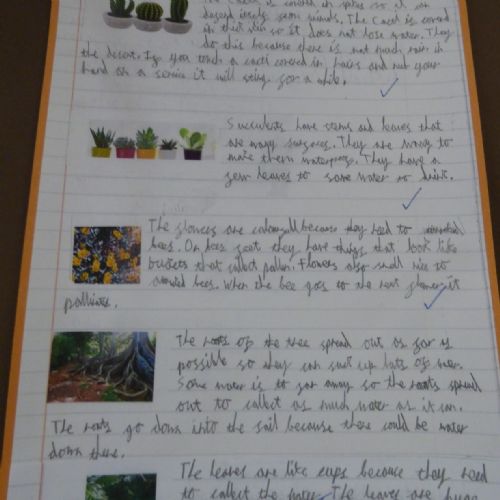 The Cacti is covered in spikes so it can
defend itself from animals. The Cacti is covered
in thick skin so it does not lose water. They
do this because there is not much rain in
the desert. If you touch a cacti covered in hairs and rub your
hand on a surface it will sting for a while.
Succulents have stems and leaves that
are waxy surfaces. They are waxy to
make them waterproof. They have a
few leaves to some water to drink.
The flowers are colourfull because they need to
bees. On bees feet they have things that look like
buckets that collect pollen. Flowers also smell nice to
bees. When the bee goes to the next flower it
pollinates.
The roots of the tree spread out as far is
possible so they can suct up lots of water.
Some water is to far away so the roots spread
out to collect as much water as it can.
The roots go down into the soil because there could be water
down there.
The leaves are like cups because they need
to collect the water. The leaves are